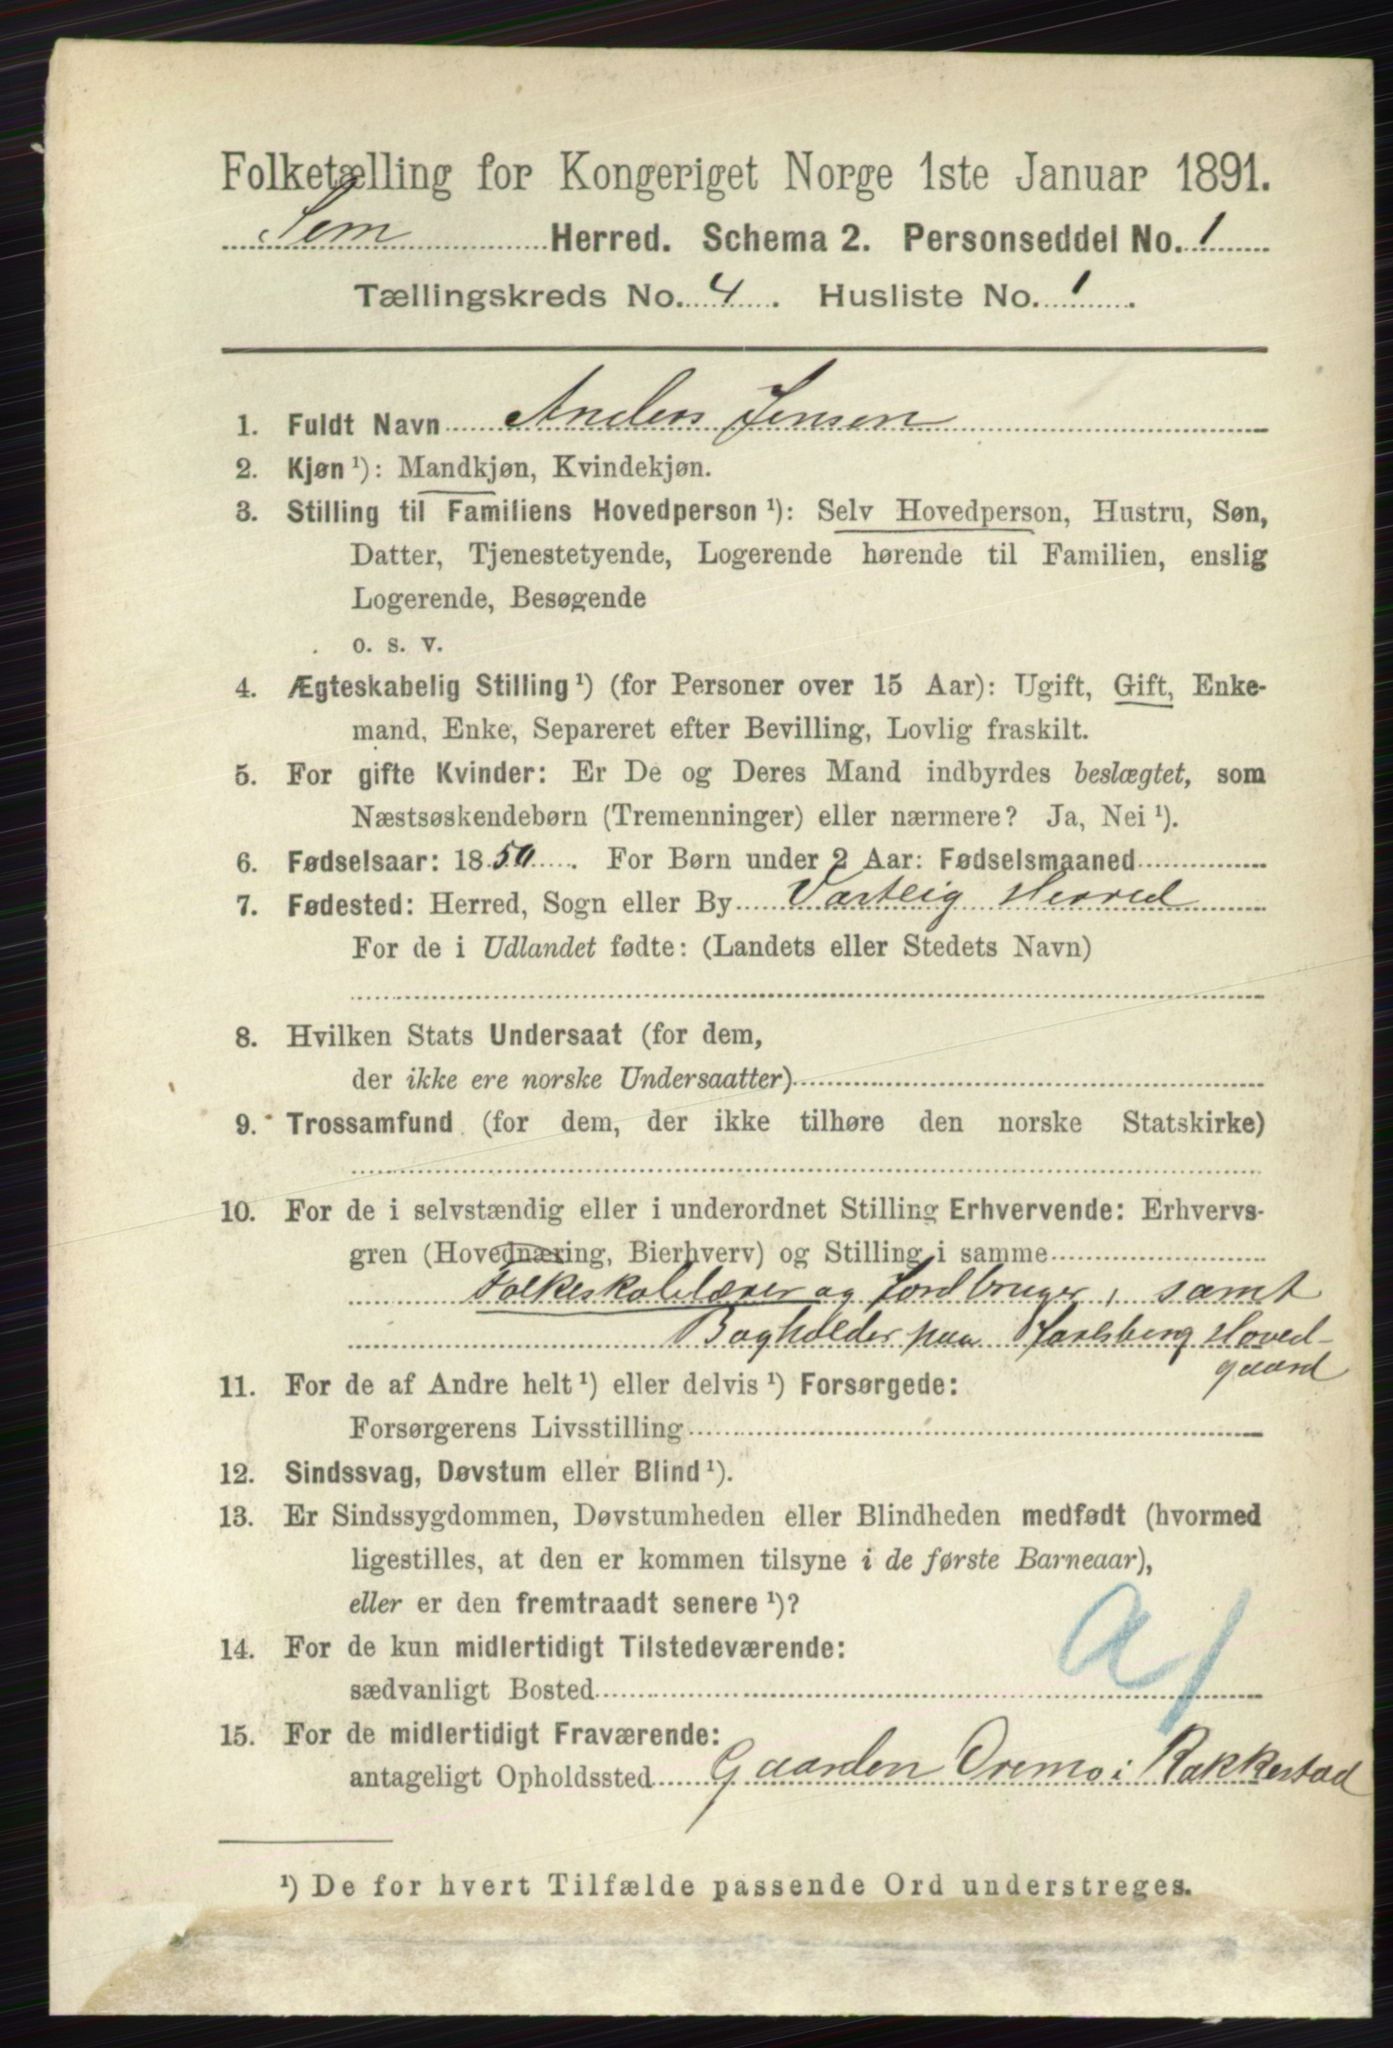 Folketælling for Kongeriget Norge 1ste Januar 1891.
Sem Herred. Schema 2. Personseddel No. 1
Tællingskreds No. 4. Husliste No. 1.
1. Fuldt Navn Anders Jensen
2. Kjøn ¹): Mandkjøn, Kvindekjøn.
3. Stilling til Familiens Hovedperson ¹): Selv Hovedperson, Hustru, Søn,
Datter, Tjenestetyende, Logerende hørende til Familien, enslig
Logerende, Besøgende
o. s. v.
4. Ægteskabelig Stilling ¹) (for Personer over 15 Aar): Ugift, Gift, Enke-
mand, Enke, Separeret efter Bevilling, Lovlig fraskilt.
5. For gifte Kvinder: Er De og Deres Mand indbyrdes beslægtet, som
Næstsøskendebørn (Tremenninger) eller nærmere? Ja, Nei ¹).
6. Fødselsaar: 1850. For Børn under 2 Aar: Fødselsmaaned
7. Fødested: Herred, Sogn eller By Varteig Herred
For de i Udlandet fødte: (Landets eller Stedets Navn)
8. Hvilken Stats Undersaat (for dem,
der ikke ere norske Undersaatter)
9. Trossamfund (for dem, der ikke tilhøre den norske Statskirke)
10. For de i selvstændig eller i underordnet Stilling Erhvervende: Erhvervs-
gren (Hovednæring, Bierhverv) og Stilling i samme
Folkeskolelærer og Jordbruger, samt
Bogholder paa Jarlsberg Hoved-
gaard
11. For de af Andre helt ¹) eller delvis ¹) Forsørgede:
Forsørgerens Livsstilling
12. Sindssvag, Døvstum eller Blind ¹).
13. Er Sindssygdommen, Døvstumheden eller Blindheden medfødt (hvormed
ligestilles, at den er kommen tilsyne i de første Barneaar),
eller er den fremtraadt senere ¹)?
14. For de kun midlertidigt Tilstedeværende:
sædvanligt Bosted
a/
15. For de midlertidigt Fraværende:
antageligt Opholdssted Gaarden Oremo i Rakkestad
¹) De for hvert Tilfælde passende Ord understreges.